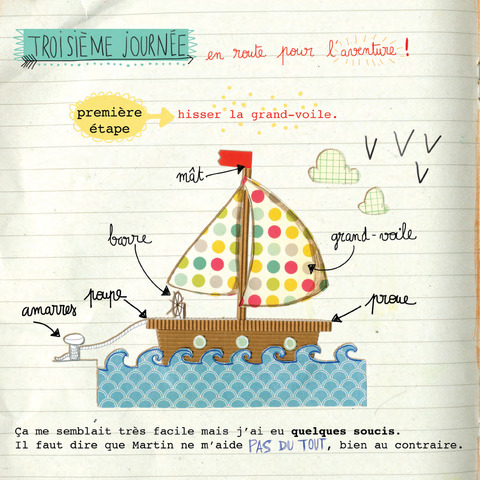 TROISIÈME JOURNÉE
en route pour l'aventure !
première
étape
hisser la grand-voile.
mât
barre
grand-voile
amarres
poupe
proue
Ça me semblait très facile mais j'ai eu quelques soucis.
Il faut dire que Martin ne m'aide PAS DU TOUT, bien au contraire.